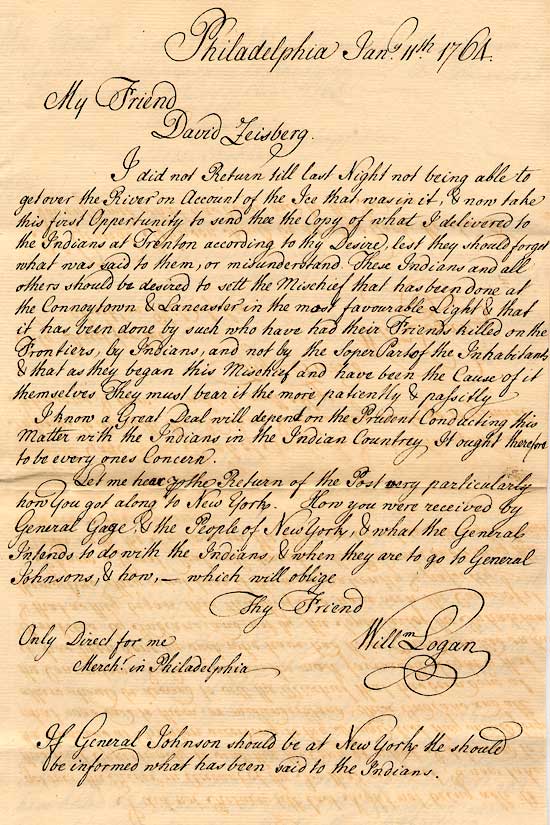 Philadelphia Jan.y 11th 1764.
My Friend
David Zeisberg.
I did not Return till last Night not being able to
get over the River on Account of the Ice that was in it, & now take
this first Opportunity to send thee the Copy of what I delivered to
the Indians at Trenton according to thy Desire, lest they should forget
what was said to them, or misunderstand. These Indians and all
others should be desired to sett the Mischief that has been done at
the Connoytown & Lancaster in the most favourable Light & that
it has been done by such who have had their Friends killed on the
Frontiers, by Indians, and not by the Soper Part of the Inhabitants
& that as they began this Mischief and have been the Cause of it
themselves They must bear it the more patiently & passitly
I know a Great Deal will depend on the Prudent Conducting this
Matter with the Indians in the Indian Countrey, It ought therefore
to be every ones Concern.
Let me hear by the Return of the Post very particularly
how You got along to New York. How you were received by
General Gage, & the People of New York, & what the Generals
Intends to do with the Indians, & when they are to go to General
Johnsons, & how, — which will oblige
Thy Friend
Only Direct for me Will.m Logan
Mercht. in Philadelphia
If General Johnson should be at New York He should
be informed what has been said to the Indians.